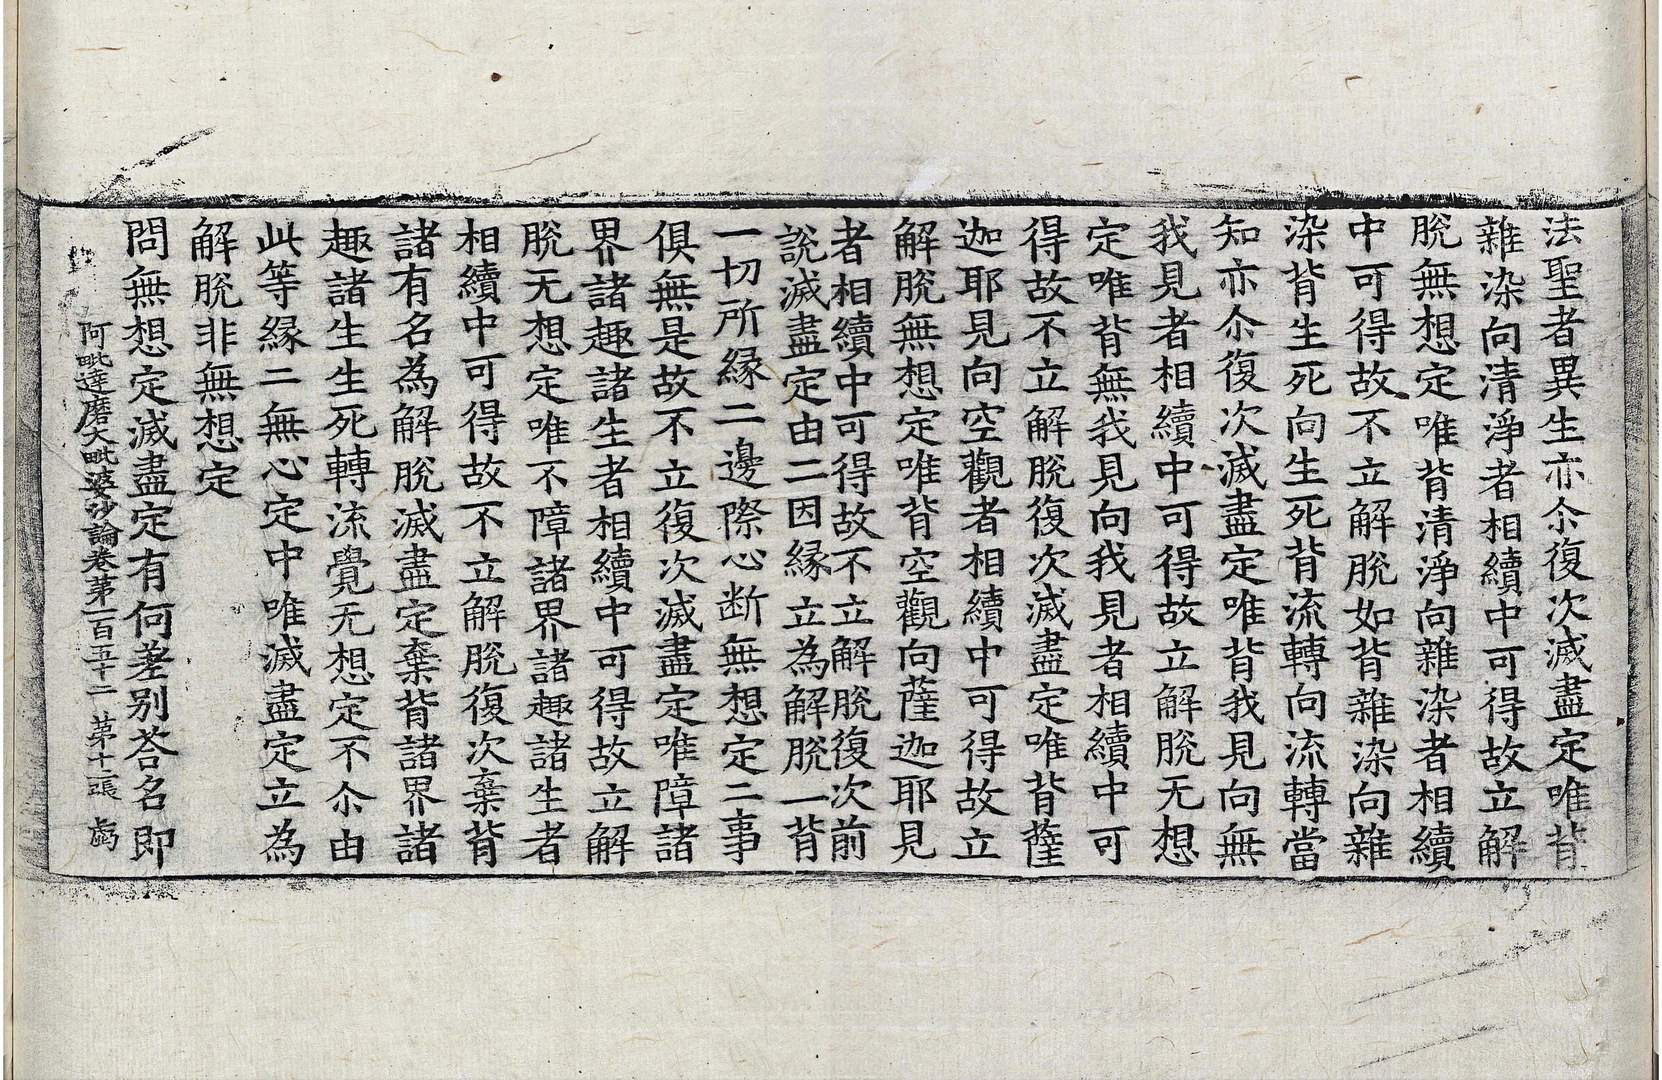 法聖者異生亦尒復次滅盡定唯背
雜染向清淨者相續中可得故立解
脫無想定唯背清淨向雜染者相續
中可得故不立解脫如背雜染向雜
染背生死向生死背流轉向流轉當
知亦尒復次滅盡定唯背我見向無
我見者相續中可得故立解脫无想
定唯背無我見向我見者相續中可
得故不立解脫復次滅盡定唯背薩
迦耶見向空觀者相續中可得故立
解脫無想定唯背空觀向薩迦耶見
者相續中可得故不立解脫復次前
說滅盡定由二因縁立為解脫一背
一切所縁二邊際心断無想定二事
俱無是故不立復次滅盡定唯障諸
界諸趣諸生者相續中可得故立解
脫无想定唯不障諸界諸趣諸生者
相續中可得故不立解脫復次棄背
諸有名為解脫滅盡定棄背諸界諸
趣諸生生死轉流覺无想定不尒由
此等縁二無心定中唯滅盡定立為
解脫非無想定
問無想定滅盡定有何差别荅名即
阿毗達磨大毗婆沙論卷第一百五十二 第十二張